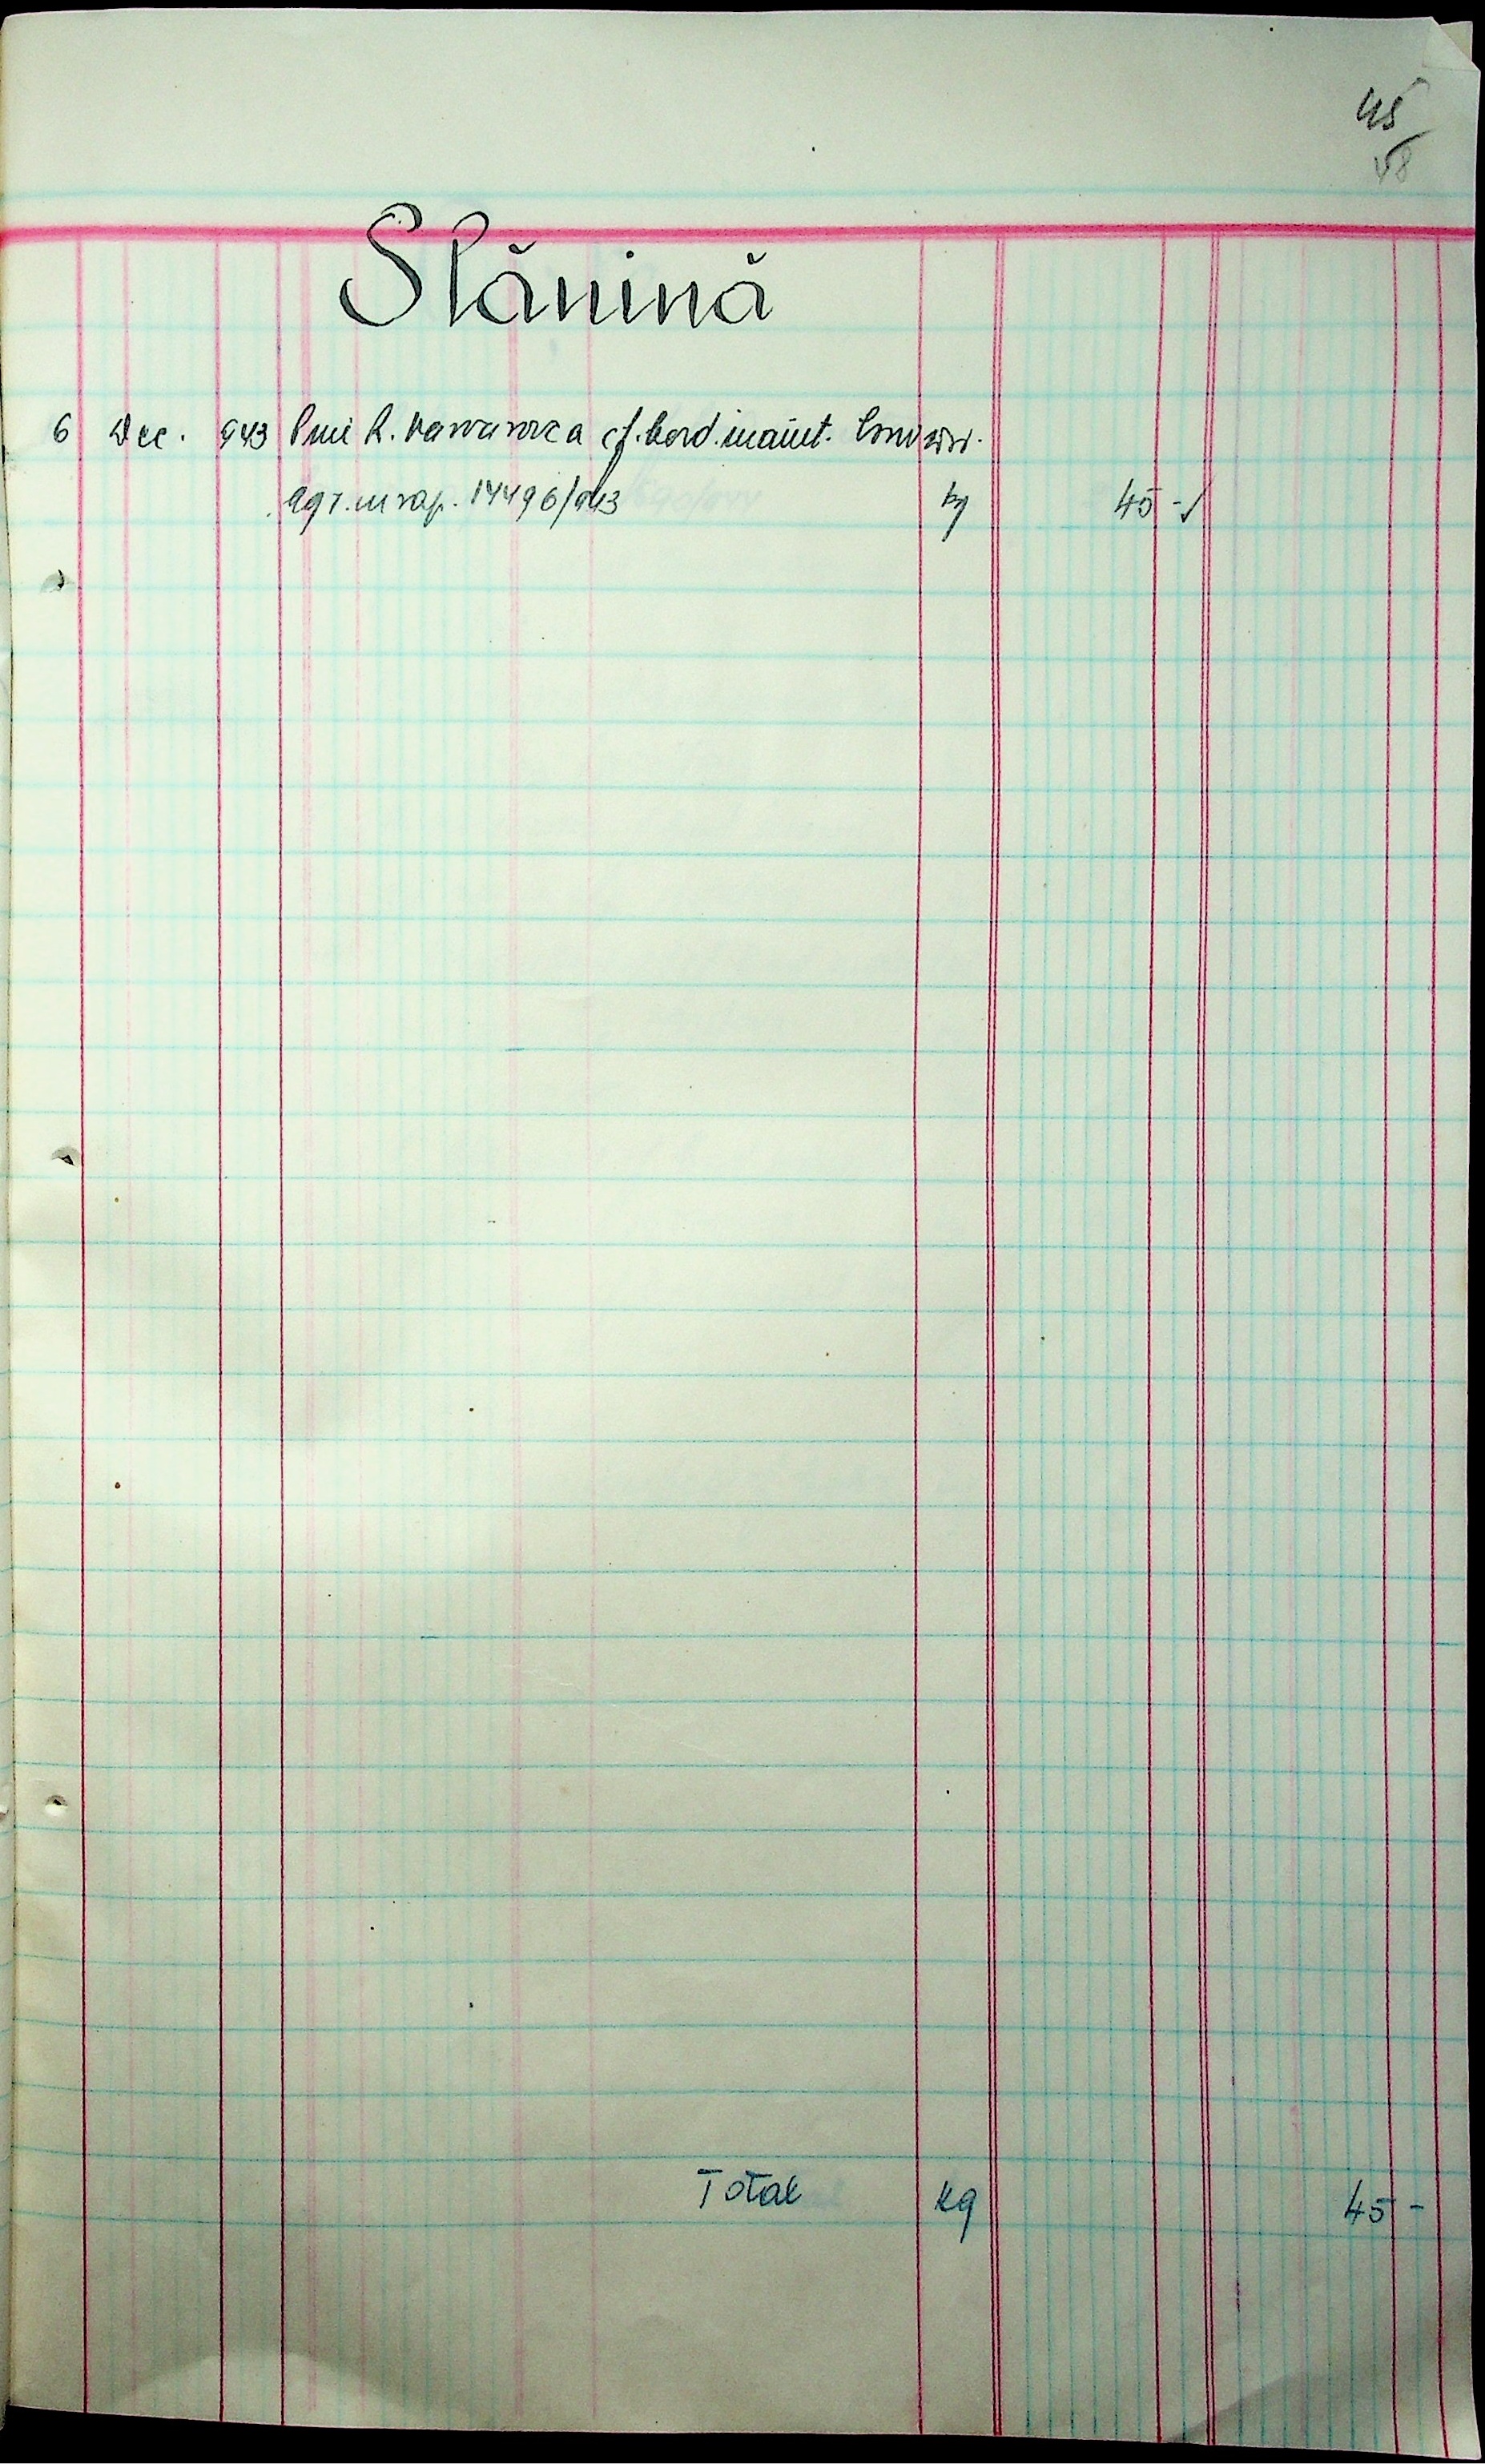 45
48
Slănină
6 Dec. 943 Prii R. cf. bord. inaint.
agr. cu rap. 14496/943 kg 45 -
Total kg 45 -